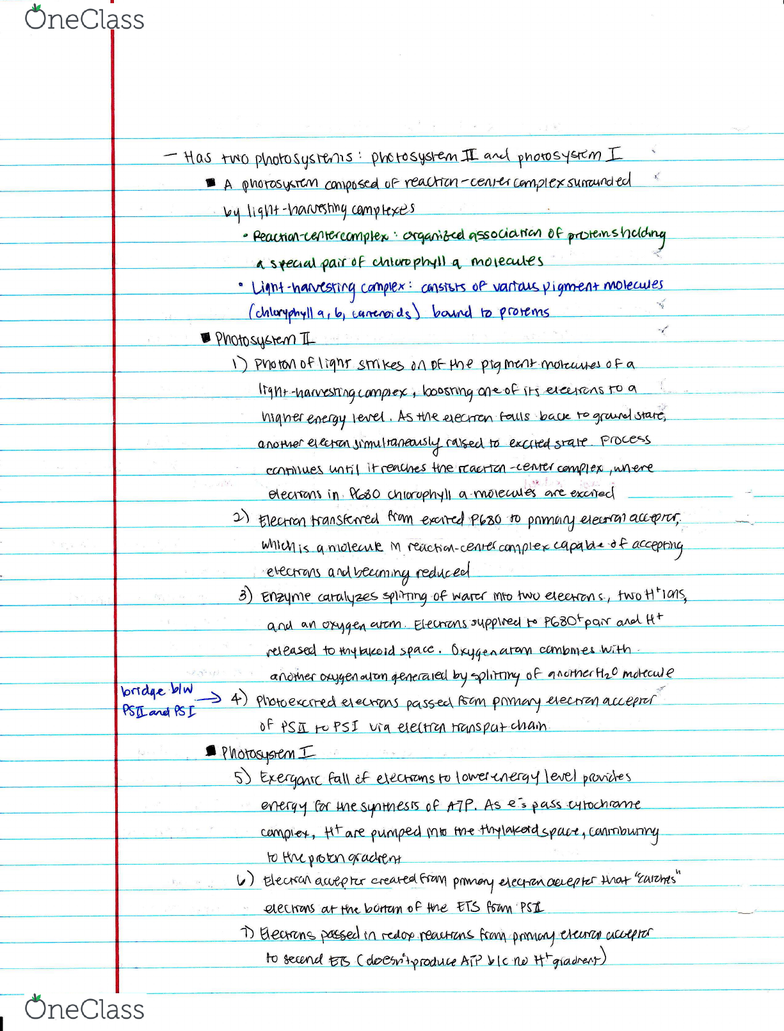 OneClass
- Has two photosystems: photosystem II and photosystem I
■ A photosystem composed of reaction-center complex surrounded
by light-harvesting complexes
• Reaction-center complex: organized association of proteins holding
a special pair of chlorophyll a molecules
• Light-harvesting complex: consists of various pigment molecules
(chloryphyll a, b, carrenoids) bound to proteins
■ Photosystem II
1) Photon of light strikes on of the pigment molecules of a
light-harvesting complex, boosting one of its electrons to a
higher energy level. As the electron falls back to ground state,
another electron simultaneously raised to excited state. Process
continues until it reaches the reaction-center complex, where
electrons in P680 chlorophyll a molecules are excited
2) Electron transferred from excited P680 to primary electron acceptor,
which is a molecule in reaction-center complex capable of accepting
electrons and becoming reduced
3) Enzyme catalyzes splitting of water into two electrons, two H⁺ ions,
and an oxygen atom. Electrons supplied to P680⁺ pair and H⁺
released to thylakoid space. Oxygen atom combines with
another oxygen atom generated by splitting of another H₂O molecule
bridge b/w
PSII and PSI
→ 4) Photoexcited electrons passed from primary electron acceptor
of PSII to PSI via electron transport chain
■ Photosystem I
5) Exergonic fall of electrons to lower energy level provides
energy for the synthesis of ATP. As e⁻s pass cytochrome
complex, H⁺ are pumped into the thylakoid space, contributing
to the proton gradient
6) Electron acceptor created from primary electron acceptor that "catches"
electrons at the bottom of the ETS from PSII
7) Electrons passed in redox reactions from primary electron acceptor
to second ETS (doesn't produce ATP b/c no H⁺ gradient)
OneClass